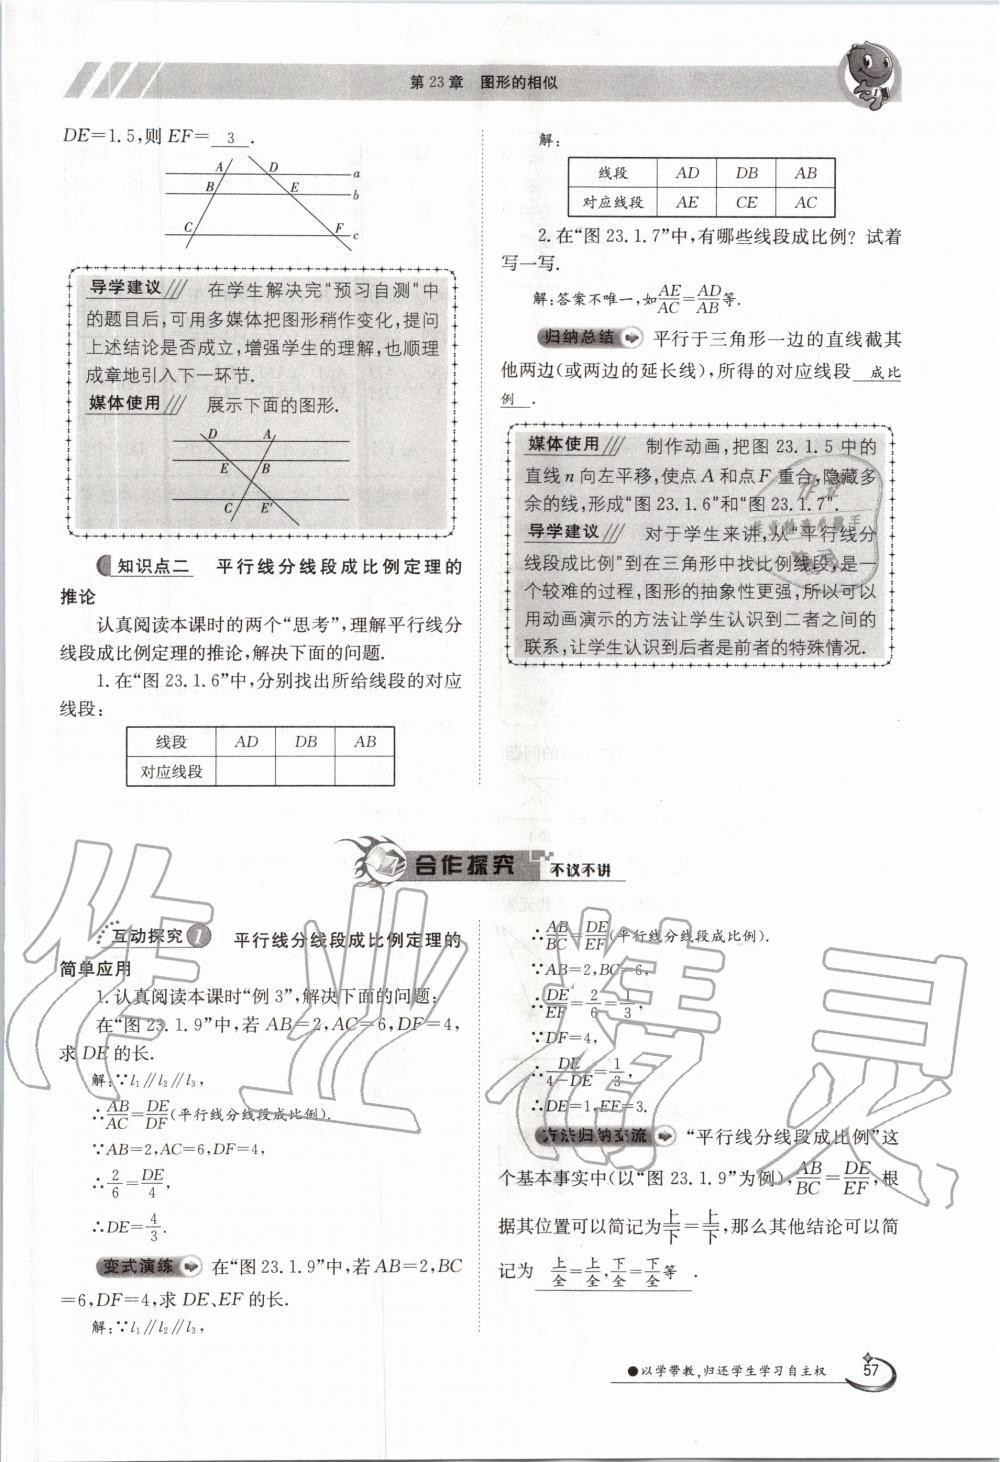 第23章 图形的相似
DE=1.5,则 EF= 3 .
A D a
B E b
C F c
导学建议 在学生解决完“预习自测”中
的题目后,可用多媒体把图形稍作变化,提问
上述结论是否成立,增强学生的理解,也顺理
成章地引入下一环节.
媒体使用 展示下面的图形.
D A
E B
C E'
知识点二 平行线分线段成比例定理的
推论
认真阅读本课时的两个“思考”,理解平行线分
线段成比例定理的推论,解决下面的问题.
1.在“图 23.1.6”中,分别找出所给线段的对应
线段:
线段 AD DB AB
对应线段
解:
线段 AD DB AB
对应线段 AE CE AC
2.在“图 23.1.7”中,有哪些线段成比例? 试着
写一写.
解:答案不唯一,如AE/AC=AD/AB等.
归纳总结 平行于三角形一边的直线截其
他两边(或两边的延长线),所得的对应线段 成比
例 .
媒体使用 制作动画,把图 23.1.5 中的
直线 n 向左平移,使点 A 和点 F 重合,隐藏多
余的线,形成“图 23.1.6”和“图 23.1.7”.
导学建议 对于学生来讲,从“平行线分
线段成比例”到在三角形中找比例线段,是一
个较难的过程,图形的抽象性更强,所以可以
用动画演示的方法让学生认识到二者之间的
联系,让学生认识到后者是前者的特殊情况.
合作探究 不议不讲
互动探究 1 平行线分线段成比例定理的
简单应用
1.认真阅读本课时“例 3”,解决下面的问题:
在“图 23.1.9”中,若 AB=2,AC=6,DF=4,
求 DE 的长.
解:∵l₁∥l₂∥l₃,
∴AB/AC=DE/DF(平行线分线段成比例).
∵AB=2,AC=6,DF=4,
∴2/6=DE/4,
∴DE=4/3.
变式演练 在“图 23.1.9”中,若 AB=2,BC
=6,DF=4,求 DE、EF 的长.
解:∵l₁∥l₂∥l₃,
∴AB/BC=DE/EF(平行线分线段成比例).
∵AB=2,BC=6,
∴DE/EF=2/6=1/3,
∵DF=4,
∴DE/4-DE=1/3,
∴DE=1,EF=3.
方法归纳交流 “平行线分线段成比例”这
个基本事实中(以“图 23.1.9”为例),AB/BC=DE/EF,根
据其位置可以简记为上/下=上/下,那么其他结论可以简
记为 上/全=上/全,下/全=下/全等 .
●以学带教,归还学生学习自主权
57
作业精灵